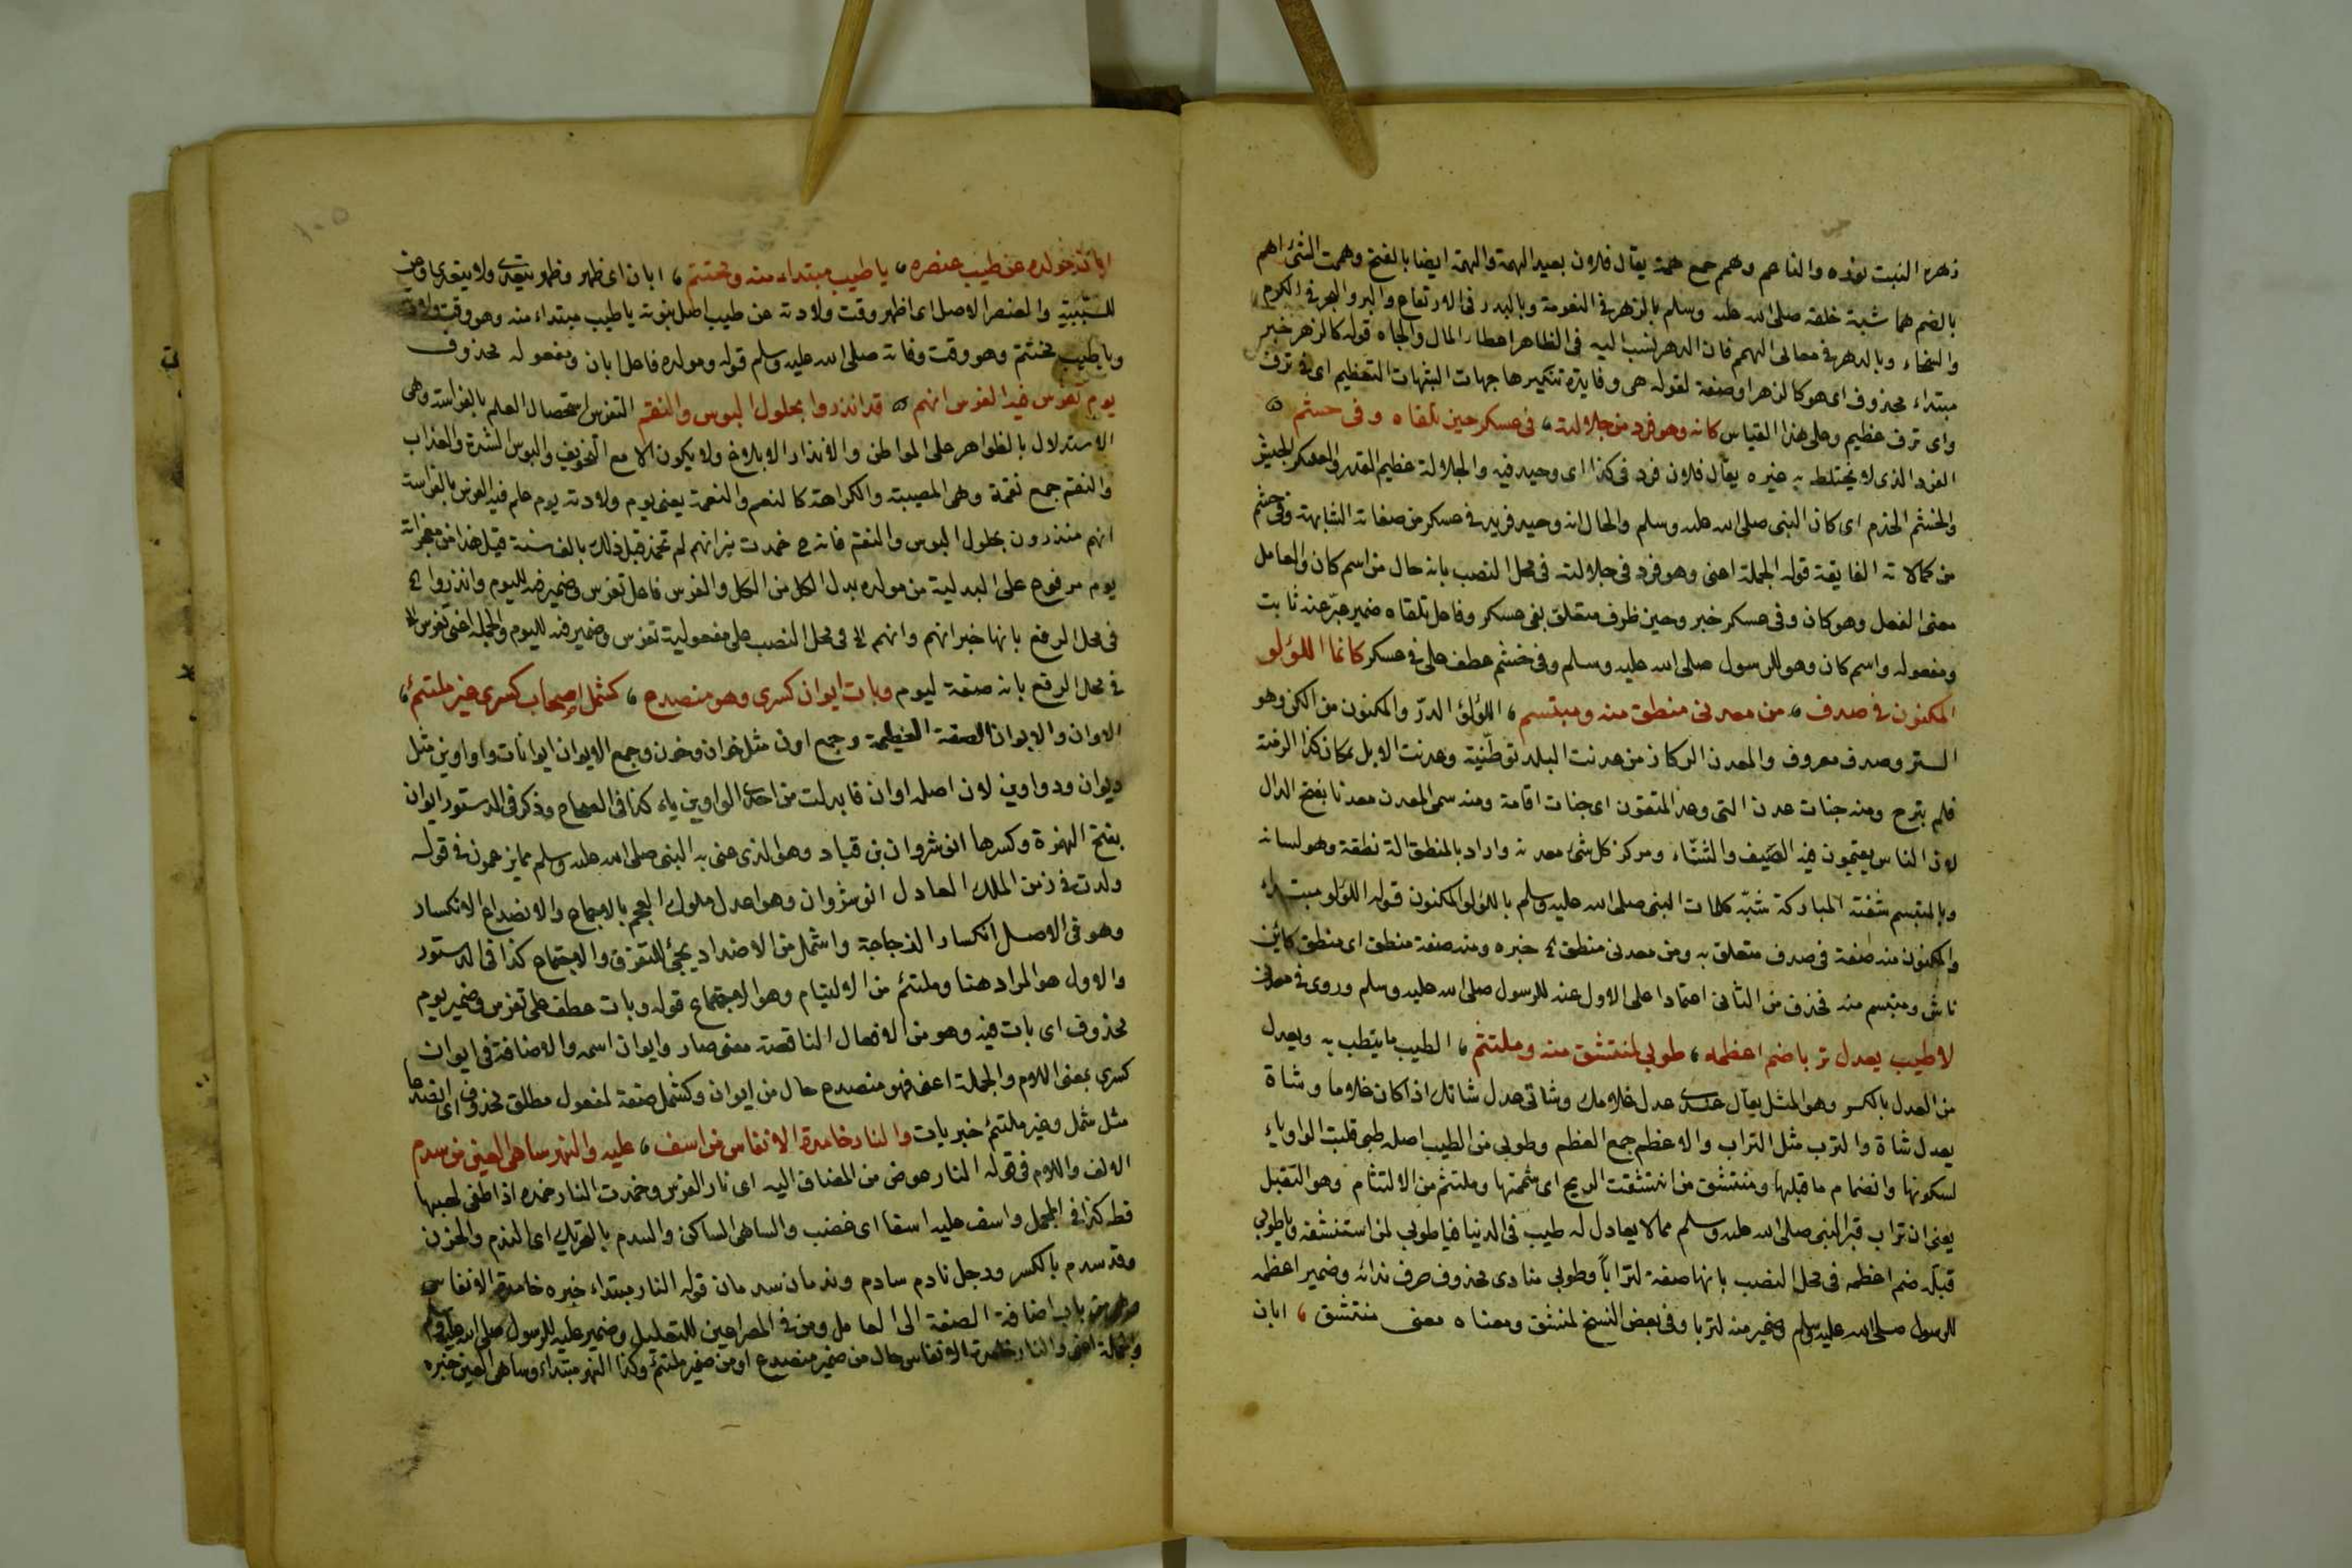 زهرة النبت نوره والناعم وهم جمع همة يقال فلان بعيد الهمة والهمة ايضا بالفتح وهمت الشئ اهم
بالضم هما شبه خلقه صلى الله عليه وسلم بالزهر في النعومة وبالبدر في الارتفاع والبر والبحر في الكرم
والسخاء وبالدهر في معالى الهمم فان الدهر ينسب اليه فى الظاهر اعطاء المال والجاه قوله كالزهر خبر
مبتداء محذوف اى هو كالزهر او صفة لقوله هى وفايدة تنكيرها جهات التعظيم اى فى ترف
واى ترف عظيم وعلى هذا القياس كانه وهو فرد من جلالته ، فى عسكر حين تلقاه وفى حشم
الفرد الذى لا يختلط به غيره يقال فلان فرد فى كذا اى وحيد فيه والجلالة عظيم القدر والعسكر الجيش
والحشم الخدم اى كان النبى صلى الله عليه وسلم والحال انه وحيد فريد فى عسكر من صفاته وفى حشم
من كمالاته الفايقة قوله الجملة اعنى وهو فرد فى جلالته فى محل النصب بانه حال من اسم كان والعامل
معنى الفعل وهو كان وفى عسكر خبر وحين ظرف متعلق بفى عسكر وفاعل تلقاه ضمير
ومفعوله واسم كان وهو للرسول صلى الله عليه وسلم وفى حشم عطف على فى عسكر كانما اللؤلو
المكنون فى صدف ، من معدنى منطق منه ومبتسم ، اللؤلؤ الدرّ والمكنون من الكن وهو
الستر وصدف معروف والمعدن الركاز من عدنت البلد توطنته وعدنت الابل بمكان كذا الزمته
فلم تبرح ومنه جنات عدن التى وعد المتقون اى جنات اقامة ومنه سمى المعدن معدنا بفتح الدال
لان الناس يقيمون فيه الصيف والشتاء ومركز كل شئ معدنه واراد بالمنطق الة نطقه وهو لسانه
وبالمبتسم شفته المباركة شبّه كلمات النبى صلى الله عليه وسلم باللؤلو المكنون قوله اللؤلو مبتداء
والمكنون منه صفة فى صدف متعلق به ومن معدنى منطق خبره ومنه صفة منطق اى منطق كاين
ناش ومبتسم منه فحذف من الثانى اعتمادا على الاول عنه للرسول صلى الله عليه وسلم وروى فى معدنى
لا طيب يعدل تربا ضم اعظمه ، طوبى لمنتشق منه وملتثم ، الطيب ما يتطيب به ويعدل
من العدل بالكسر وهو المثل يقال عندى عدل غلامك وشاتى عدل شاتك اذا كان غلاما وشاة
يعدل شاة والترب مثل التراب والاعظم جمع العظم وطوبى من الطيب اصله طيبى قلبت الواو ياء
لسكونها وانضمام ما قبلها ومنتشق من انتشقت الريح اى شممتها وملتثم من الالتثام وهو التقبيل
يعنى ان تراب قبر النبى صلى الله عليه وسلم مما لا يعادل له طيب فى الدنيا فيا طوبى لمن استنشقه ويا طوبى
قبله ضم اعظمه فى محل النصب بانها صفة لترابا وطوبى منادى محذوف حرف ندائه وضمير اعظمه
للرسول صلى الله عليه وسلم وضمير منه لتربا وفى بعض النسخ لمنشق ومعناه معنى منتشق ، ابان
ابان مولده عن طيب عنصره ، يا طيب مبتداء منه ومختتم ، ابان اى ظهر وظهر يتعدى ولا يتعدى وعن
للسببية والعنصر الاصل اى اظهر وقت ولادته عن طيب اصل بنوته يا طيب مبتداء منه وهو وقت ولادته
ويا طيب مختتم وهو وقت وفاته صلى الله عليه وسلم قوله ومولده فاعل ابان ومفعوله محذوف
يوم تفرس فيه الفرس انهم قد انذروا بحلول البوس والنقم التفرس استحصال العلم بالفراسة وهى
الاستدلال بالظواهر على المواطن والانذار الابلاغ ولا يكون الا مع التخويف والبوس الشدة والعذاب
والنقم جمع نقمة وهى المصيبة والكراهة كالنعم والنعمة يعنى يوم ولادته يوم علم فيه الفرس بالفراسة
انهم منذرون بحلول البوس والنقم فانه ح خمدت نيرانهم لم تخمد قبل ذلك بالف سنة قيل هذا من معجزاته
يوم مرفوع على البدلية من مولده بدل الكل من الكل والفرس فاعل تفرس وضمير فيه لليوم وانذروا
فى محل الرفع بانها خبر انهم وانهم الخ فى محل النصب على مفعولية تفرس وضمير فيه لليوم والجملة اعنى تفرس الخ
فى محل الرفع بانه صفة ليوم وبات ايوان كسرى وهو منصدع ، كشمل اصحاب كسرى غير ملتئم ،
الاوان والايوان الصفة العظيمة وجمع اون مثل خوان وخون وجمع الايوان ايوانات واواوين مثل
ديوان ودواوين لان اصله اوان فابدلت من احدى الواوين ياء كذا فى الصحاح وذكر فى الدستور ايوان
بفتح الهمزة وكسرها انوشروان بن قباد وهو الذى عنى به النبى صلى الله عليه وسلم مما يزعمون فى قوله
ولدت فى زمن الملك العادل انوشروان وهو اعدل ملوك العجم بالاجماع والانصداع الانكسار
وهو فى الاصل انكسار الزجاجة واشمل من الاضداد يجئ للتفرق والاجتماع كذا فى الدستور
والاول هو المراد هنا وملتئم من الالتيام وهو الاجتماع قوله وبات عطف على تفرس وضمير يوم
محذوف اى بات فيه وهو من الافعال الناقصة معنى صار وايوان اسمه والاضافة فى ايوان
كسرى بمعنى اللام والجملة اعنى فهو منصدع حال من ايوان وكشمل صفة لمفعول مطلق محذوف اى انصداعا
مثل شمل وغير ملتئم خبر بات والنار خامدة الانفاس من اسف ، عليه والنهر ساهى العين من سدم
الالف واللام فى قوله النار عوض من المضاف اليه اى نار الفرس وخمدت النار خمده اذا اطفى لهبها
قط كذا فى المجمل واسف عليه اسفا اى غضب والساهى الساكن والسدم بالتحريك اى الندم والحزن
وقد سدم بالكسر ورجل نادم سادم وندمان سدمان قوله النار مبتداء خبره خامدة الانفاس
من باب اضافة الصفة الى العامل ومن فى المصراعين للتعليل وضمير عليه للرسول صلى الله عليه وسلم
والجملة اعنى والنار خامدة الانفاس حال من ضمير منصدع او من ضمير ملتئم وكذا النهر مبتداء وساهى العين خبره